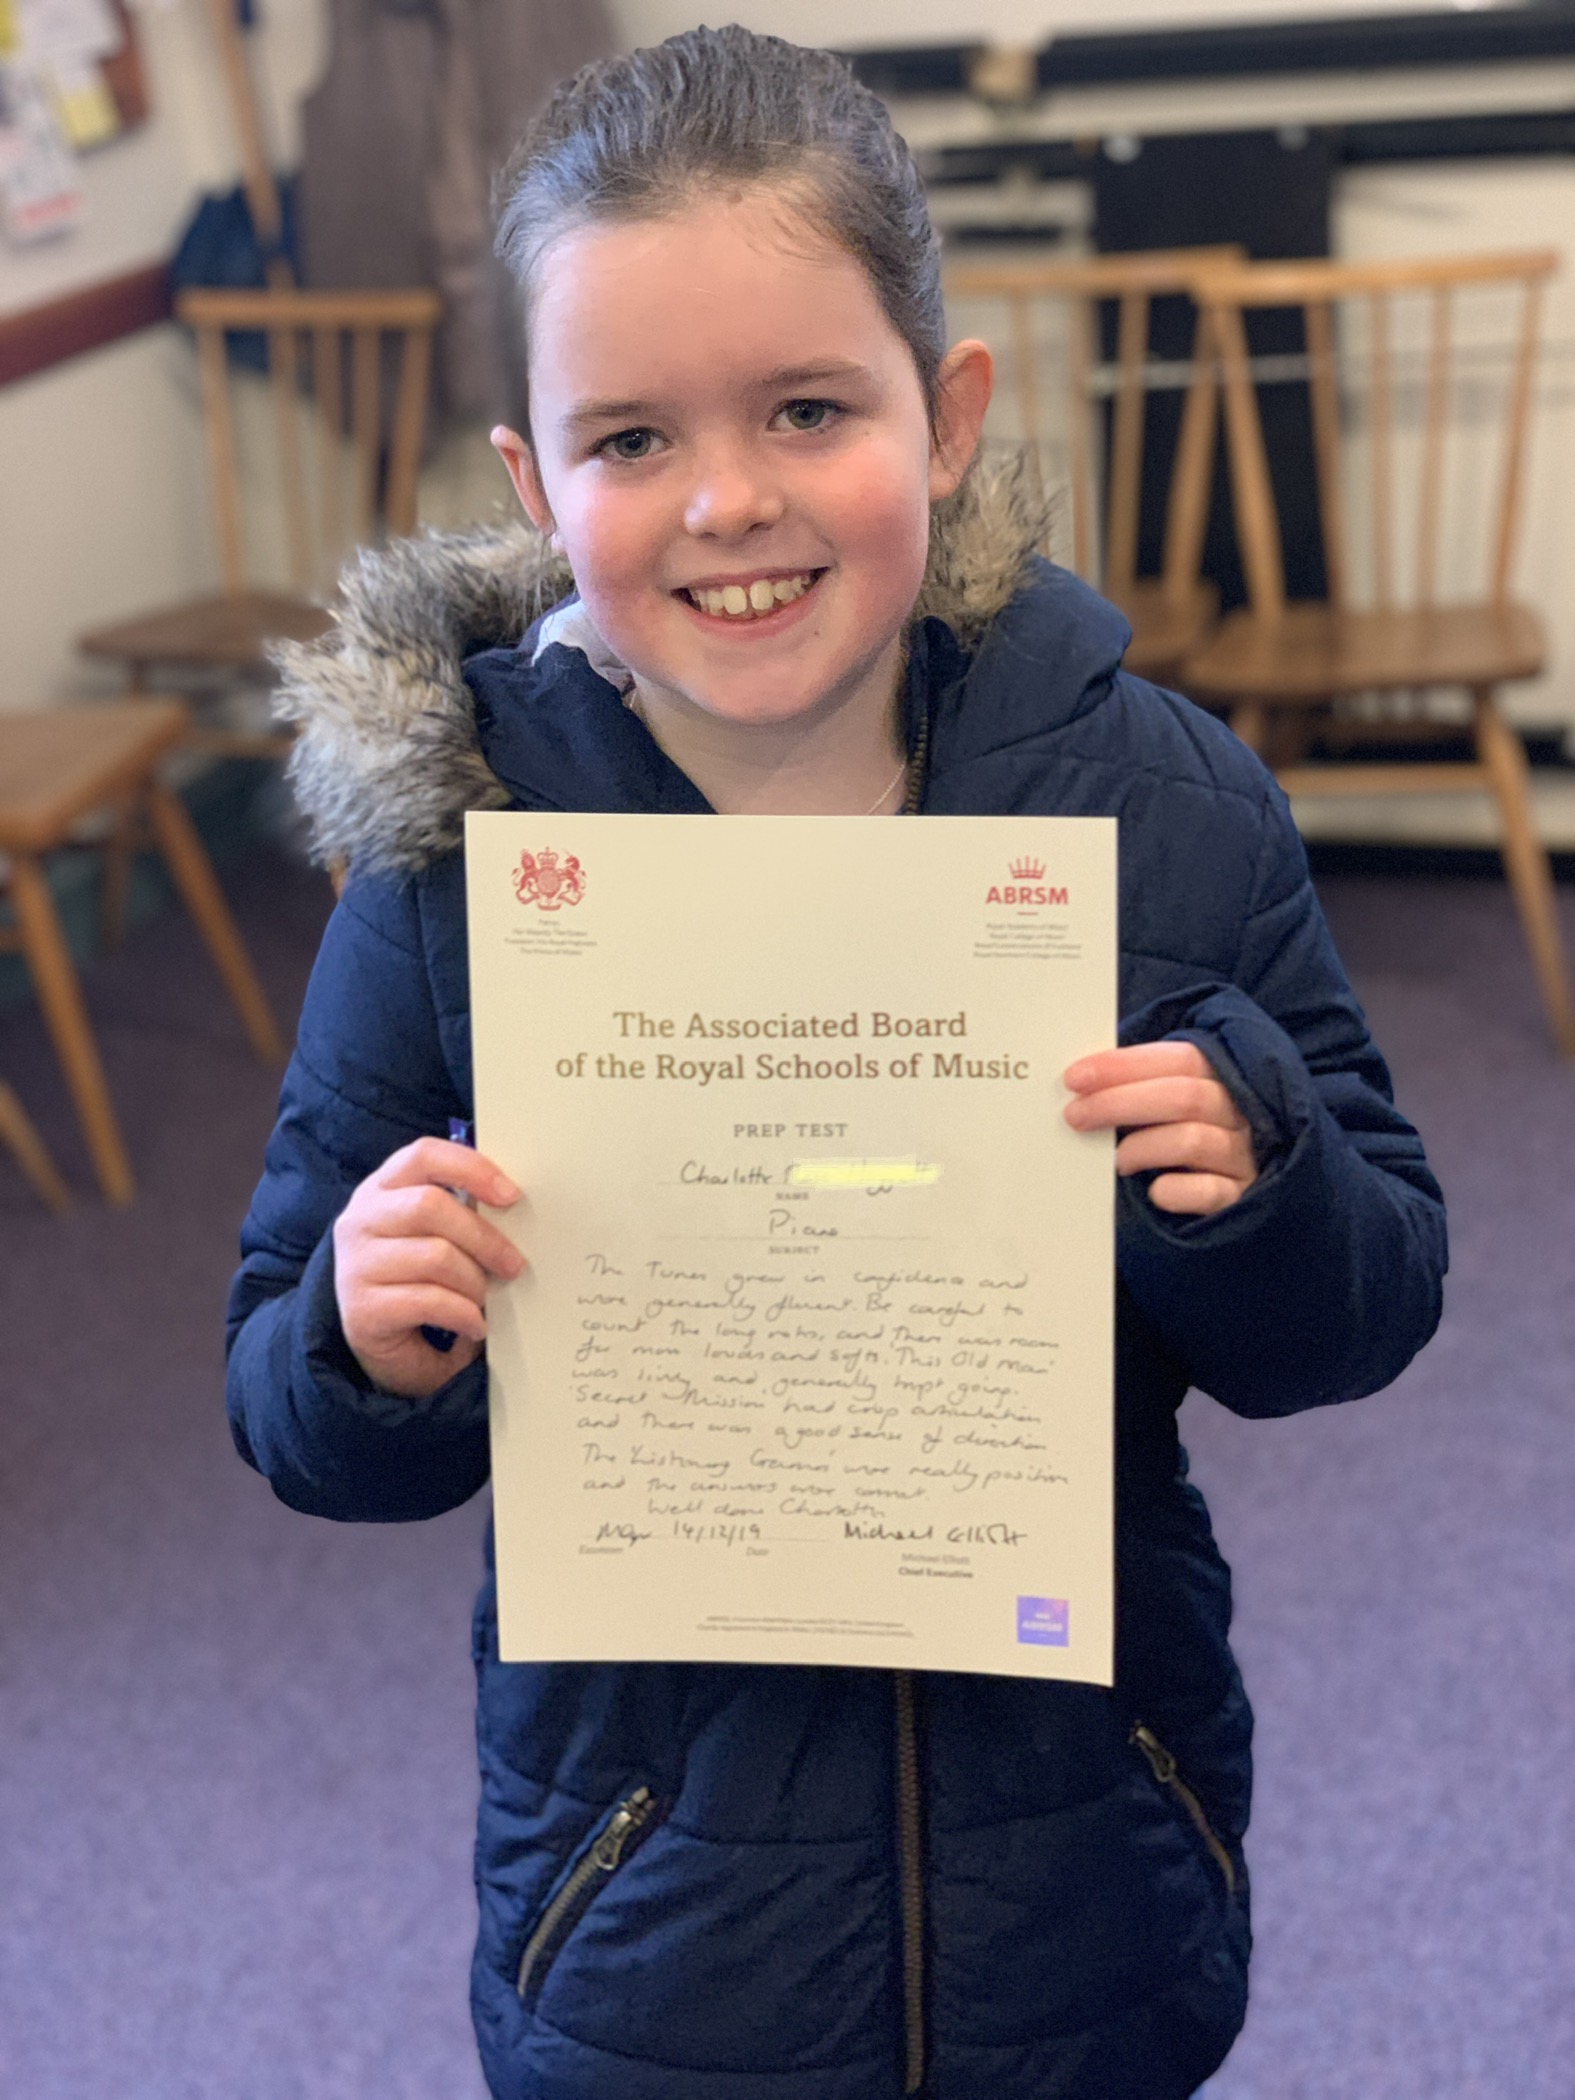 ABRSM
Patron
Her Majesty The Queen
President His Royal Highness
The Prince of Wales
Royal Academy of Music
Royal College of Music
Royal Conservatoire of Scotland
Royal Northern College of Music
The Associated Board
of the Royal Schools of Music
PREP TEST
Charlotte
NAME
Piano
SUBJECT
The Tunes grew in confidence and
were generally fluent. Be careful to
count the long notes, and there was room
for more louds and softs. 'This Old Man'
was lively and generally kept going.
'Secret Mission' had crisp articulation
and there was a good sense of direction.
The 'Listening Games' were really positive
and the answers were correct.
Well done Charlotte
14/12/19 Michael Elliott
Examiner Date Michael Elliott
Chief Executive
ABRSM